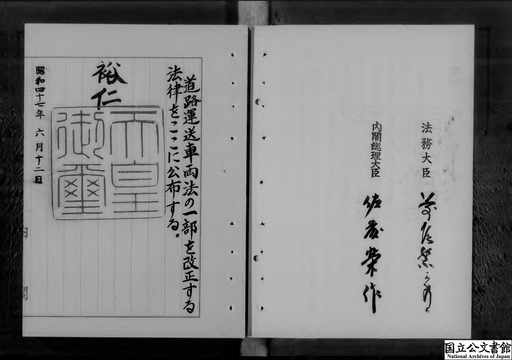 法務大臣
内閣総理大臣 佐藤榮作
道路運送車両法の一部を改正する
法律をここに公布する。
裕仁
天皇
御璽
昭和四十七年 六月十二日
国立公文書館
National Archives of Japan